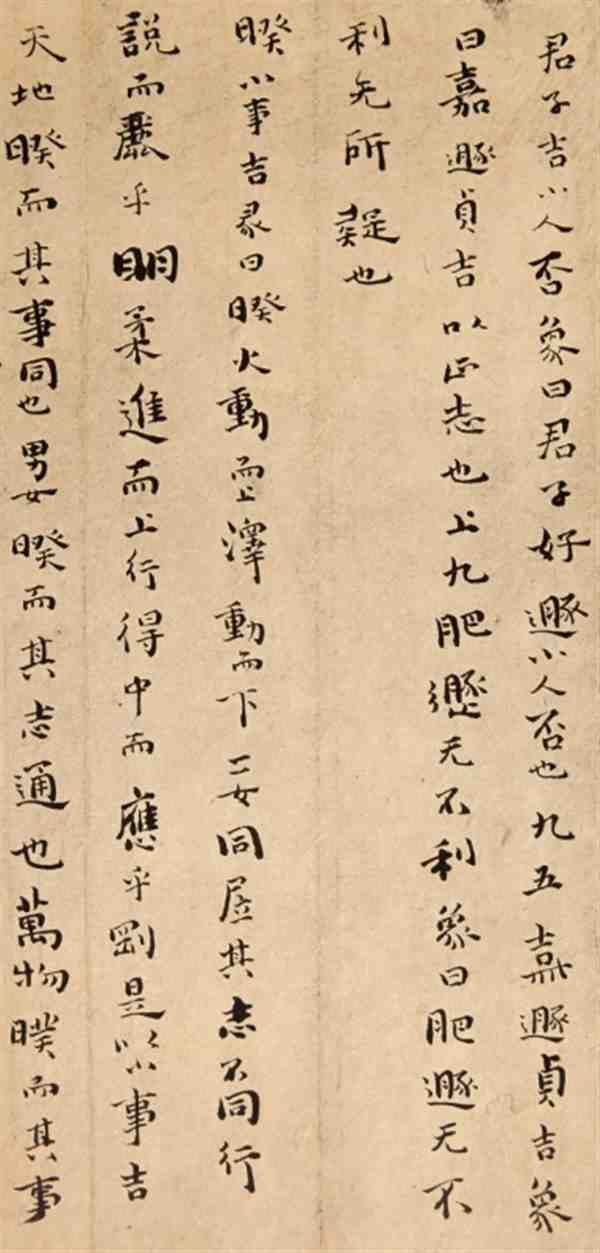 君子吉小人否象曰君子好遯小人否也九五嘉遯貞吉象
曰嘉遯貞吉以正志也上九肥遯无不利象曰肥遯无不
利无所疑也
睽小事吉彖曰睽火動而上澤動而下二女同居其志不同行
說而麗乎明柔進而上行得中而應乎剛是以小事吉
天地睽而其事同也男女睽而其志通也萬物睽而其事